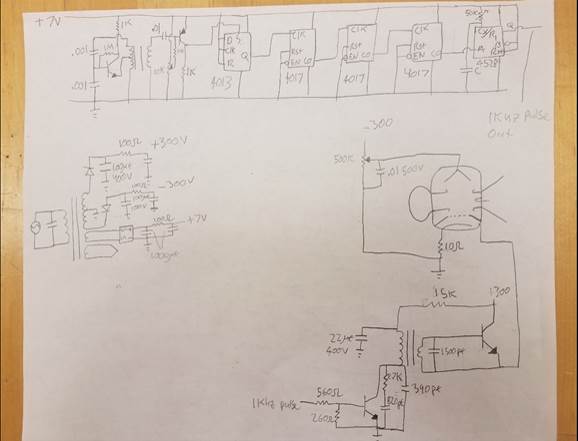 +7V
1K
.001
1M
.01
10K
1K
.001
D S
CLK
R Q
4013
CLK
Rst
EN CO
4017
CLK
Rst
EN CO
4017
CLK
Rst
EN CO
4017
50K
Q
A
4528
C
1KHz pulse
Out
100Ω +300V
100µf
400V
-300V
100Ω
100µf
400V
100Ω +7V
1000µf
-300
500K
.01 500V
10Ω
15K
1300
22µf
400V
1500pf
2.7K
820pf
390pf
1KHz pulse
560Ω
260Ω